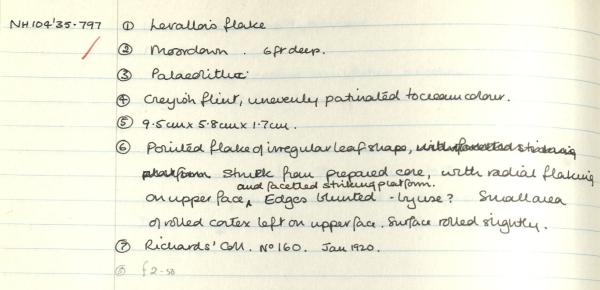 NH104'35·797 ① Levallois flake
② Moordown . 6ft deep.
③ Palaeolithic
④ Greyish flint, unevenly patinated to cream colour.
⑤ 9.5cm x 5.8cm x 1.7cm.
⑥ Pointed flake of irregular leaf shape, with facetted striking
platform struck from prepared core, with radial flaking
and facetted striking platform.
on upper face, Edges blunted - by use? Small area
of rolled cortex left on upper face. Surface rolled slightly.
⑦ Richards' Coll. No 160. Jan 1920.
⑧ £2-50